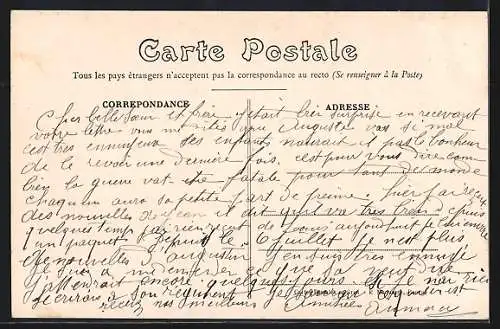 Carte Postale
Tous les pays étrangers n'acceptent pas la correspondance au recto (Se renseigner à la Poste)
CORREPONDANCE
ADRESSE
Cher belle Sœur et frère j'etait bien surprise en recevant
votre lettre vous me dites que Auguste vas si mal
c'est tres ennuyeux Ses enfants naurait pas le bonheur
de le revoir une dernière fois, c'est pour vous dire com
bien la guere vat ete fatale pour tant de monde
chaqu'un aura sa petite part de peine. hier j'ai reçu
des nouvelles de Jean il dit qu'il va tres bien depuis
quelques temp j'ai rien recut de
un paquet depuis le 6 juillet Je n'est plus
de nouvelles d'augustin j'en suis tres ennuyé
Je suis a me demander ce que sa veut dire
J'attendrait encore quelques jours et si je nai rien
j'ecrirais a son regiment
recevez nos meilleurs Amitiés